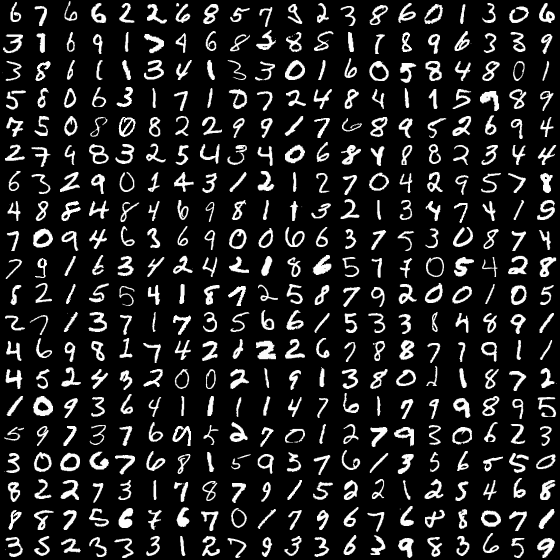 6 7 6 6 2 2 6 8 5 7 8 2 3 8 6 0 1 3 0 6
3 1 6 9 1 7 4 6 8 2 8 8 1 7 8 9 6 3 8 9
3 8 6 1 1 3 4 1 3 3 0 1 6 0 5 8 4 8 0 1
5 8 0 6 3 1 7 1 0 7 2 4 8 4 1 1 5 9 8 9
7 5 0 8 0 8 2 2 9 9 1 7 6 8 9 5 2 6 9 4
2 7 9 8 3 2 5 4 3 4 0 6 8 4 8 8 2 3 4 4
6 3 2 9 0 1 4 3 1 2 1 2 7 0 4 2 9 5 7 8
4 8 8 4 8 4 6 9 8 1 1 3 2 1 3 4 7 4 1 5
7 0 9 4 6 3 6 9 0 0 6 6 3 7 5 3 0 8 7 4
7 9 1 6 3 4 2 4 2 1 8 6 5 7 7 0 5 4 2 8
8 2 1 5 5 4 1 8 7 2 5 8 7 9 2 0 0 1 0 5
2 7 1 3 7 1 7 3 5 6 6 1 5 3 3 8 4 8 9 1
4 6 9 8 1 7 4 2 2 2 2 6 7 8 8 7 7 9 1 1
4 5 2 4 3 2 0 0 2 1 9 1 3 8 0 2 1 8 7 2
1 0 9 3 6 4 1 1 1 1 4 7 6 1 7 9 9 8 9 5
5 9 7 3 7 6 9 5 2 7 0 1 2 7 9 3 0 6 2 3
3 0 0 6 7 6 8 1 5 9 3 7 6 1 3 5 6 5 5 0
8 2 2 7 3 1 7 8 7 9 1 5 2 2 1 2 5 4 6 8
8 8 7 5 6 7 6 7 0 1 7 9 6 7 6 8 8 0 7 1
3 5 2 3 3 3 1 2 7 9 3 3 6 3 9 8 3 6 5 9